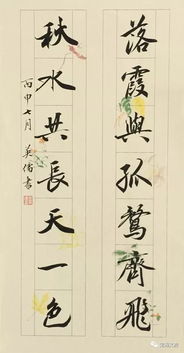 落霞與孤鶩齊飛
秋水共長天一色
丙申七月 英偉書